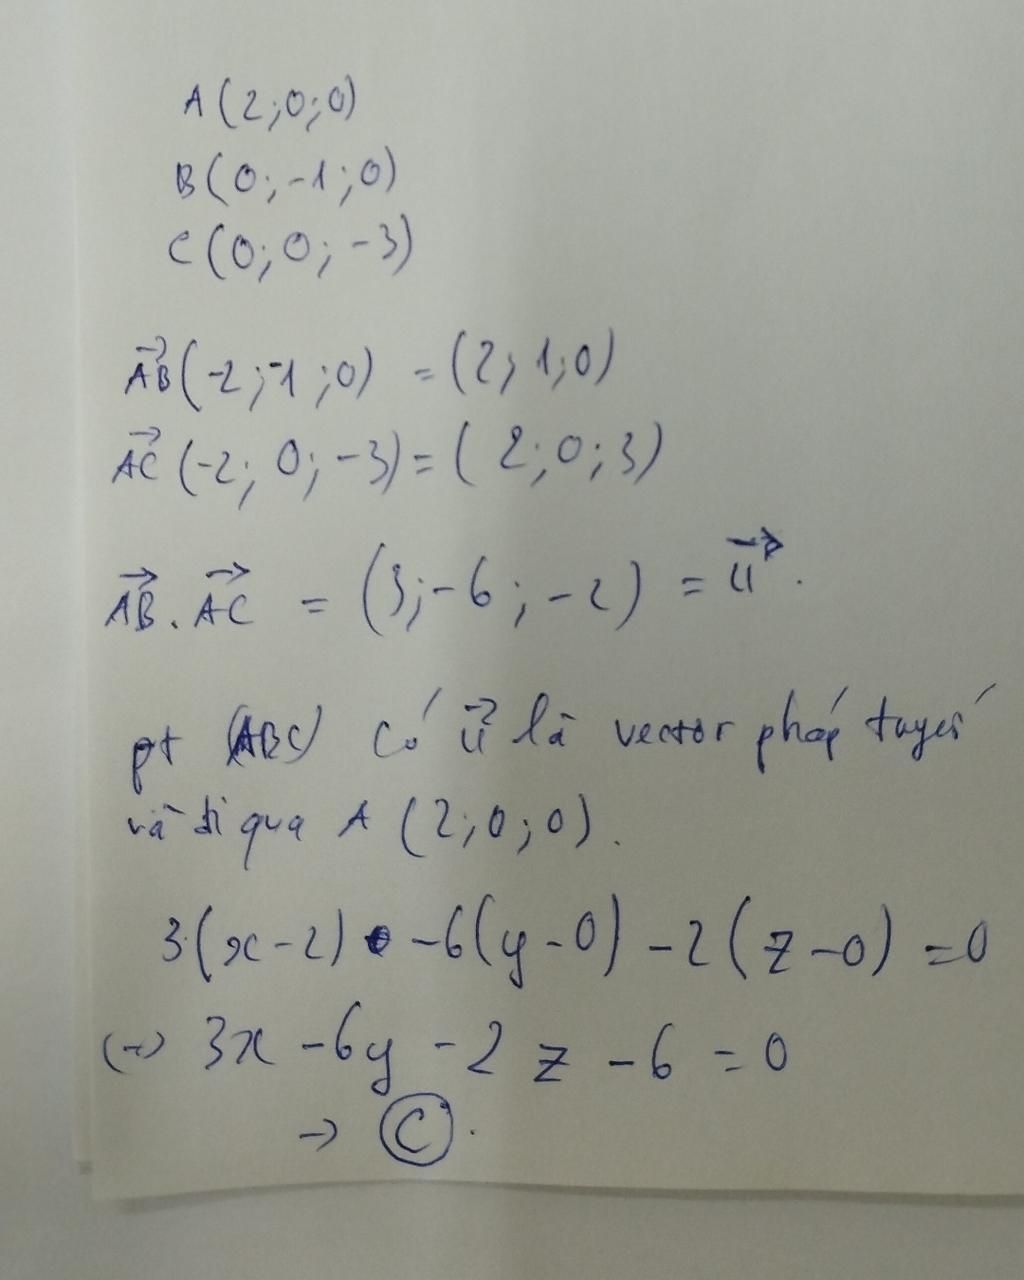 A (2;0;0)
B (0;-1;0)
C (0;0;-3)
$\overrightarrow{AB}$ (-2;-1;0) = (2;1;0)
$\overrightarrow{AC}$ (-2;0;-3) = (2;0;3)
$\overrightarrow{AB}$ . $\overrightarrow{AC}$ = (3;-6;-2) = $\overrightarrow{u}$ .
pt (ABC) có $\overrightarrow{u}$ là vector pháp tuyến
và đi qua A (2;0;0).
3(x-2) -6(y-0) -2(z-0) =0
(→) 3x -6y -2z -6 =0
→ C .